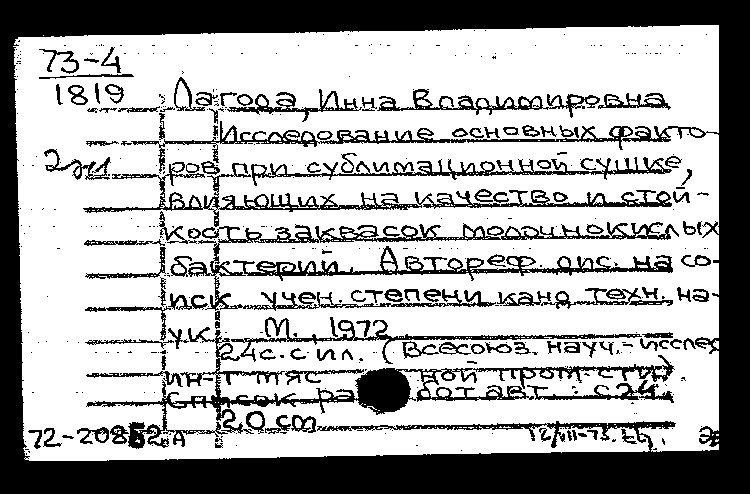 73-4
1819
Лагода, Инна Владимировна
Исследование основных факто-
2 эк
ров при сублимационной сушке,
влияющих на качество и стой-
кость заквасок молочнокислых
бактерий. Автореф. дис. на со-
иск. учен. степени канд. техн. на-
ук М., 1972
24 с. с ил. (Всесоюз. науч.-исслед
ин-т мяс ной пром-сти).
Список ра бот авт.: с. 24.
20 cm
72-20852 А
12/VII-73.